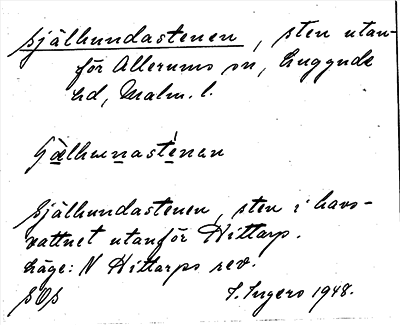 Själhundastenen, sten utan-
för Allerums sn, Luggude
hd, Malm. l.
Själhundastenen, sten i havs-
vattnet utanför Hittarp.
Läge: N Hittarps rev.
S. Ingers 1948.